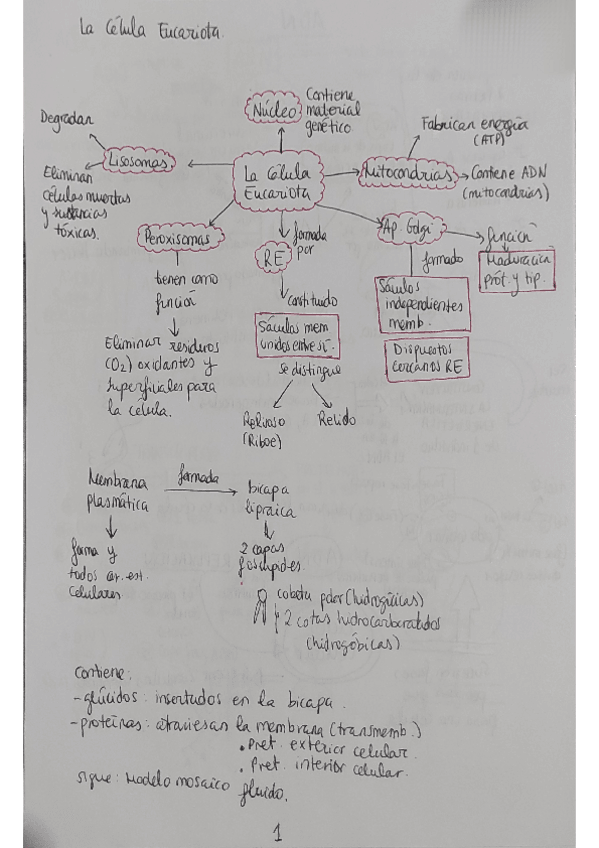 La Célula Eucariota.
Núcleo
Contiene
material
genético
Degradar
Lisosomas
Eliminan
células muertas
y sustancias
tóxicas.
La Célula
Eucariota
Fabrican energía
(ATP)
Mitocondrias
Contiene ADN
(mitocondrias)
Peroxisomas
tienen como
función
Eliminar residuos
(O2) oxidantes y
superficiales para
la célula.
formada
por
RE
constituido
Sáculos mem
unidos entre sí.
se distingue
Rugoso
Ap. Golgi
formado
Sáculos
independientes
memb.
Dispuestos
cercanos RE
función
Maduración
prót. y
Membrana
plasmática
formada
bicapa
forma y
todos
celulares
2 capas
2 colas
Contiene:
-glúcidos: insertados en la bicapa.
-proteínas: atraviesan la membrana (transmemb.)
• Prot. exterior celular.
• Prot. interior celular.
sigue: Modelo mosaico fluido.
1